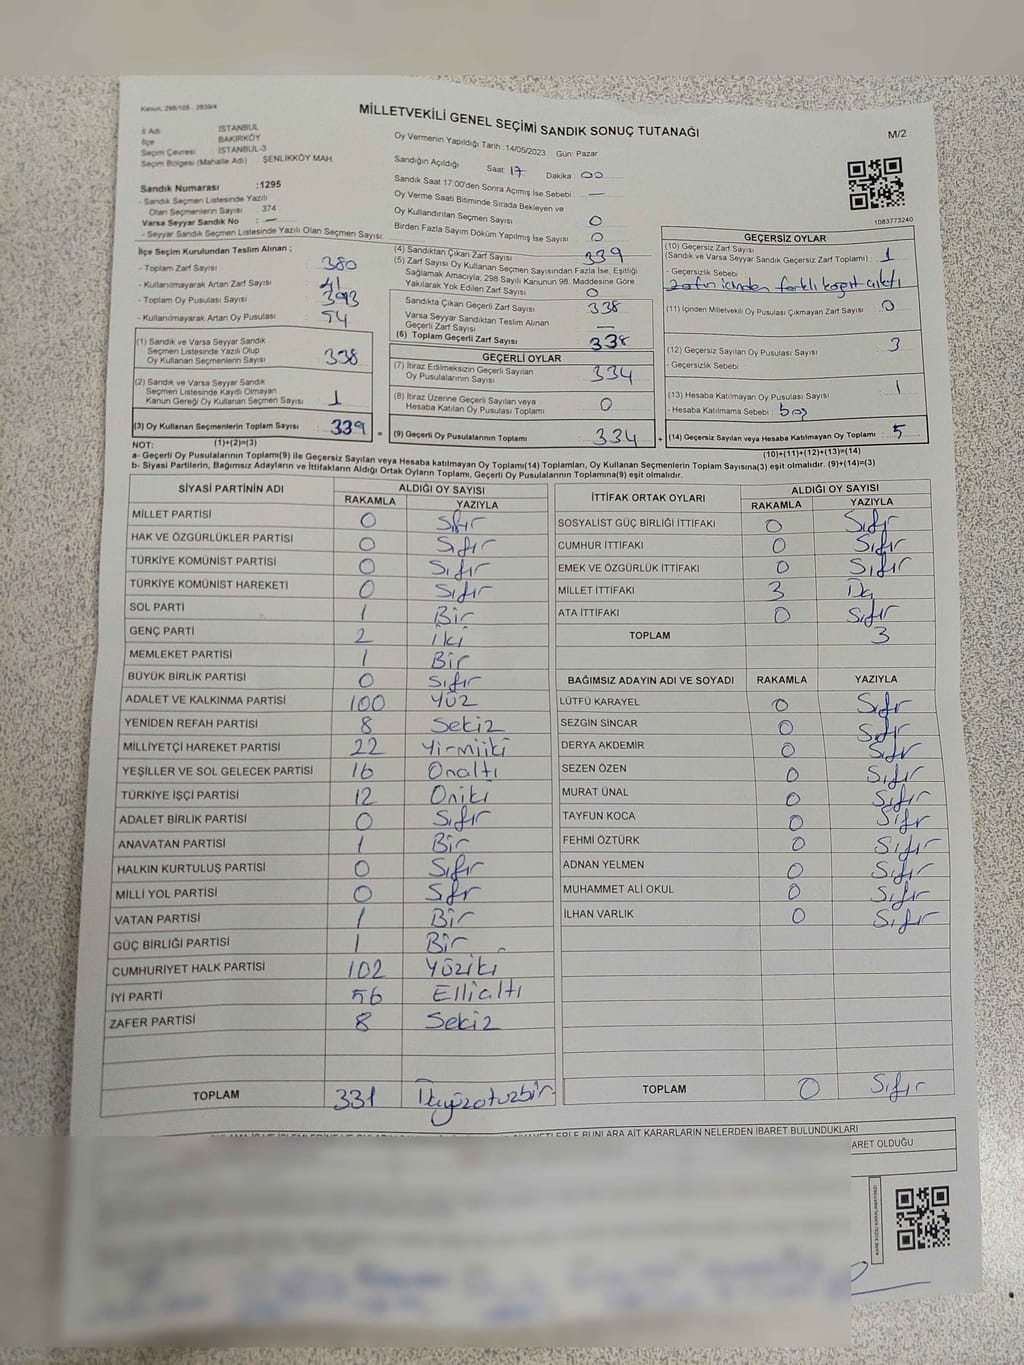 Kanun, 298/105 , 2839/4
MİLLETVEKİLİ GENEL SEÇİMİ SANDIK SONUÇ TUTANAĞI
M/2
İl Adı İSTANBUL
İlçe BAKIRKÖY
Seçim Çevresi İSTANBUL-3
Seçim Bölgesi (Mahalle Adı) ŞENLİKKÖY MAH.
Sandık Numarası :1295
- Sandık Seçmen Listesinde Yazılı
Olan Seçmenlerin Sayısı 374
Varsa Seyyar Sandık No : —
- Seyyar Sandık Seçmen Listesinde Yazılı Olan Seçmen Sayısı:
Oy Vermenin Yapıldığı Tarih :14/05/2023 Gün: Pazar
Sandığın Açıldığı Saat: 17 Dakika 00
Sandık Saat 17:00'den Sonra Açılmış İse Sebebi: —
Oy Verme Saati Bitiminde Sırada Bekleyen ve
Oy Kullandırılan Seçmen Sayısı 0
Birden Fazla Sayım Döküm Yapılmış İse Sayısı 0
1083773240
İlçe Seçim Kurulundan Teslim Alınan ;
- Toplam Zarf Sayısı 380
- Kullanılmayarak Artan Zarf Sayısı 41
- Toplam Oy Pusulası Sayısı 393
- Kullanılmayarak Artan Oy Pusulası 54
(1) Sandık ve Varsa Seyyar Sandık
Seçmen Listesinde Yazılı Olup
Oy Kullanan Seçmenlerin Sayısı 338
(2) Sandık ve Varsa Seyyar Sandık
Seçmen Listesinde Kayıtlı Olmayan
Kanun Gereği Oy Kullanan Seçmen Sayısı 1
(3) Oy Kullanan Seçmenlerin Toplam Sayısı 339
(4) Sandıktan Çıkan Zarf Sayısı 339
(5) Zarf Sayısı Oy Kullanan Seçmen Sayısından Fazla İse, Eşitliği
Sağlamak Amacıyla; 298 Sayılı Kanunun 98. Maddesine Göre
Yakılarak Yok Edilen Zarf Sayısı 0
Sandıkta Çıkan Geçerli Zarf Sayısı 338
Varsa Seyyar Sandıktan Teslim Alınan
Geçerli Zarf Sayısı —
(6) Toplam Geçerli Zarf Sayısı 338
GEÇERLİ OYLAR
(7) İtiraz Edilmeksizin Geçerli Sayılan
Oy Pusulalarının Sayısı 334
(8) İtiraz Üzerine Geçerli Sayılan veya
Hesaba Katılan Oy Pusulası Toplamı 0
= (9) Geçerli Oy Pusulalarının Toplamı 334
GEÇERSİZ OYLAR
(10) Geçersiz Zarf Sayısı
(Sandık ve Varsa Seyyar Sandık Geçersiz Zarf Toplamı) : 1
- Geçersizlik Sebebi
zarfın içinden farklı kağıt çıktı
(11) İçinden Milletvekili Oy Pusulası Çıkmayan Zarf Sayısı : 0
(12) Geçersiz Sayılan Oy Pusulası Sayısı 3
- Geçersizlik Sebebi
(13) Hesaba Katılmayan Oy Pusulası Sayısı 1
- Hesaba Katılmama Sebebi : boş
+ (14) Geçersiz Sayılan veya Hesaba Katılmayan Oy Toplamı : 5
NOT: (1)+(2)=(3)
(10)+(11)+(12)+(13)=(14)
a- Geçerli Oy Pusulalarının Toplamı(9) ile Geçersiz Sayılan veya Hesaba katılmayan Oy Toplamı(14) Toplamları, Oy Kullanan Seçmenlerin Toplam Sayısına(3) eşit olmalıdır. (9)+(14)=(3)
b- Siyasi Partilerin, Bağımsız Adayların ve İttifakların Aldığı Ortak Oyların Toplamı, Geçerli Oy Pusulalarının Toplamına(9) eşit olmalıdır.
SİYASİ PARTİNİN ADI ALDIĞI OY SAYISI
RAKAMLA YAZIYLA
MİLLET PARTİSİ 0 Sıfır
HAK VE ÖZGÜRLÜKLER PARTİSİ 0 Sıfır
TÜRKİYE KOMÜNİST PARTİSİ 0 Sıfır
TÜRKİYE KOMÜNİST HAREKETİ 0 Sıfır
SOL PARTİ 1 Bir
GENÇ PARTİ 2 iki
MEMLEKET PARTİSİ 1 Bir
BÜYÜK BİRLİK PARTİSİ 0 Sıfır
ADALET VE KALKINMA PARTİSİ 100 Yüz
YENİDEN REFAH PARTİSİ 8 Sekiz
MİLLİYETÇİ HAREKET PARTİSİ 22 Yirmiiki
YEŞİLLER VE SOL GELECEK PARTİSİ 16 Onaltı
TÜRKİYE İŞÇİ PARTİSİ 12 Oniki
ADALET BİRLİK PARTİSİ 0 Sıfır
ANAVATAN PARTİSİ 1 Bir
HALKIN KURTULUŞ PARTİSİ 0 Sıfır
MİLLİ YOL PARTİSİ 0 Sıfır
VATAN PARTİSİ 1 Bir
GÜÇ BİRLİĞİ PARTİSİ 1 Bir
CUMHURİYET HALK PARTİSİ 102 Yüziki
İYİ PARTİ 56 Ellialtı
ZAFER PARTİSİ 8 Sekiz
TOPLAM 331 Üçyüzotuzbir
İTTİFAK ORTAK OYLARI ALDIĞI OY SAYISI
RAKAMLA YAZIYLA
SOSYALİST GÜÇ BİRLİĞİ İTTİFAKI 0 Sıfır
CUMHUR İTTİFAKI 0 Sıfır
EMEK VE ÖZGÜRLÜK İTTİFAKI 0 Sıfır
MİLLET İTTİFAKI 3 Üç
ATA İTTİFAKI 0 Sıfır
TOPLAM 3
BAĞIMSIZ ADAYIN ADI VE SOYADI RAKAMLA YAZIYLA
LÜTFÜ KARAYEL 0 Sıfır
SEZGİN SİNCAR 0 Sıfır
DERYA AKDEMİR 0 Sıfır
SEZEN ÖZEN 0 Sıfır
MURAT ÜNAL 0 Sıfır
TAYFUN KOCA 0 Sıfır
FEHMİ ÖZTÜRK 0 Sıfır
ADNAN YELMEN 0 Sıfır
MUHAMMET ALİ OKUL 0 Sıfır
İLHAN VARLIK 0 Sıfır
TOPLAM 0 Sıfır
BUNLARA AİT KARARLARIN NELERDEN İBARET BULUNDUKLARI
ARET OLDUĞU